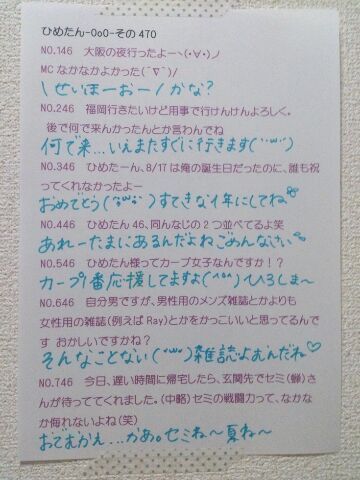 ひめたん-OoO-その470
NO.146　大阪の夜行ったよーヽ(･∀･)ノ
MCなかなかよかった(´∇｀)/
\せいほーおー/かな?
NO.246　福岡行きたいけど用事で行けんけんよろしく。
後で何で来んかったんとか言わんでね
何で来...いえまたすぐに行きます(¨ω¨)
NO.346　ひめたーん、8/17は俺の誕生日だったのに、誰も祝
ってくれなかったよー
おめでとう(¨ω¨)すてきな1年にしてね
NO.446　ひめたん46、同んなじの2つ並べてるよ笑
あれーたまにあるんだよねごめんなさい
NO.546　ひめたん様ってカープ女子なんですか！？
カープ1番応援してますよ(^^^)ひろしまー
NO.646　自分男ですが、男性用のメンズ雑誌とかよりも
女性用の雑誌(例えばRay)とかをかっこいいと思ってるんで
す おかしいですかね?
そんなことない(¨ω¨)雑誌よむんだね♡
NO.746　今日、遅い時間に帰宅したら、玄関先でセミ(蝉)さ
んが待っててくれました。(中略)セミの戦闘力って、なかな
か侮れないよね(笑)
おでむかえ...かあ。セミね〜夏ね〜